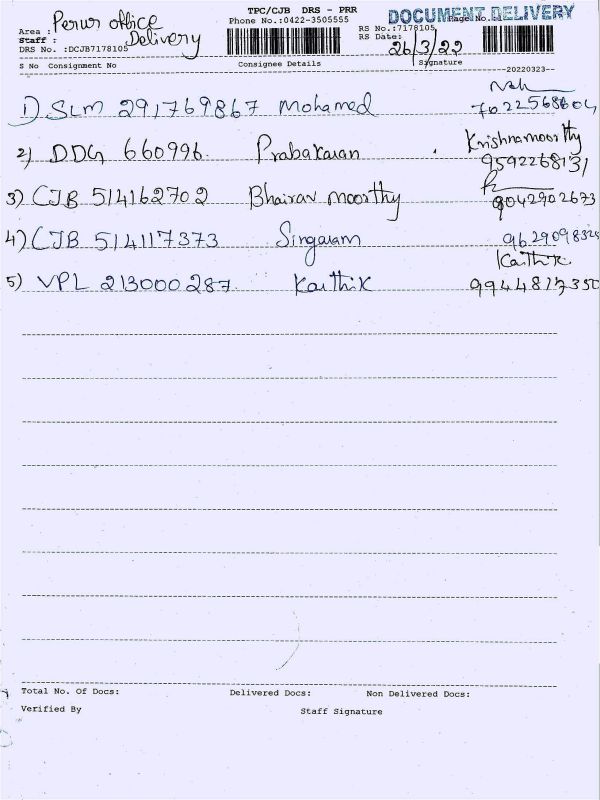 TPC/CJB DRS - PRR
DOCUMENT DELIVERY
Page No.
Area : Perur office
Phone No.:0422-3505555
RS No.:7178105
Staff : Delivery
RS Date: 26/3/22
DRS No. :DCJB7178105
S No Consignment No Consignee Details Signature
20220323
1) SLM 291769867 Mohamed
7022568604
2) DDG 660996 Prabakaran Krishnamoorthy
9592268131
3) CJB 514162702 Bhairav moorthy
9042902673
4) CJB 514117373 Singaram 9629098325
Karthik
5) VPL 213000287 Karthik 9944817350
Total No. Of Docs: Delivered Docs: Non Delivered Docs:
Verified By Staff Signature